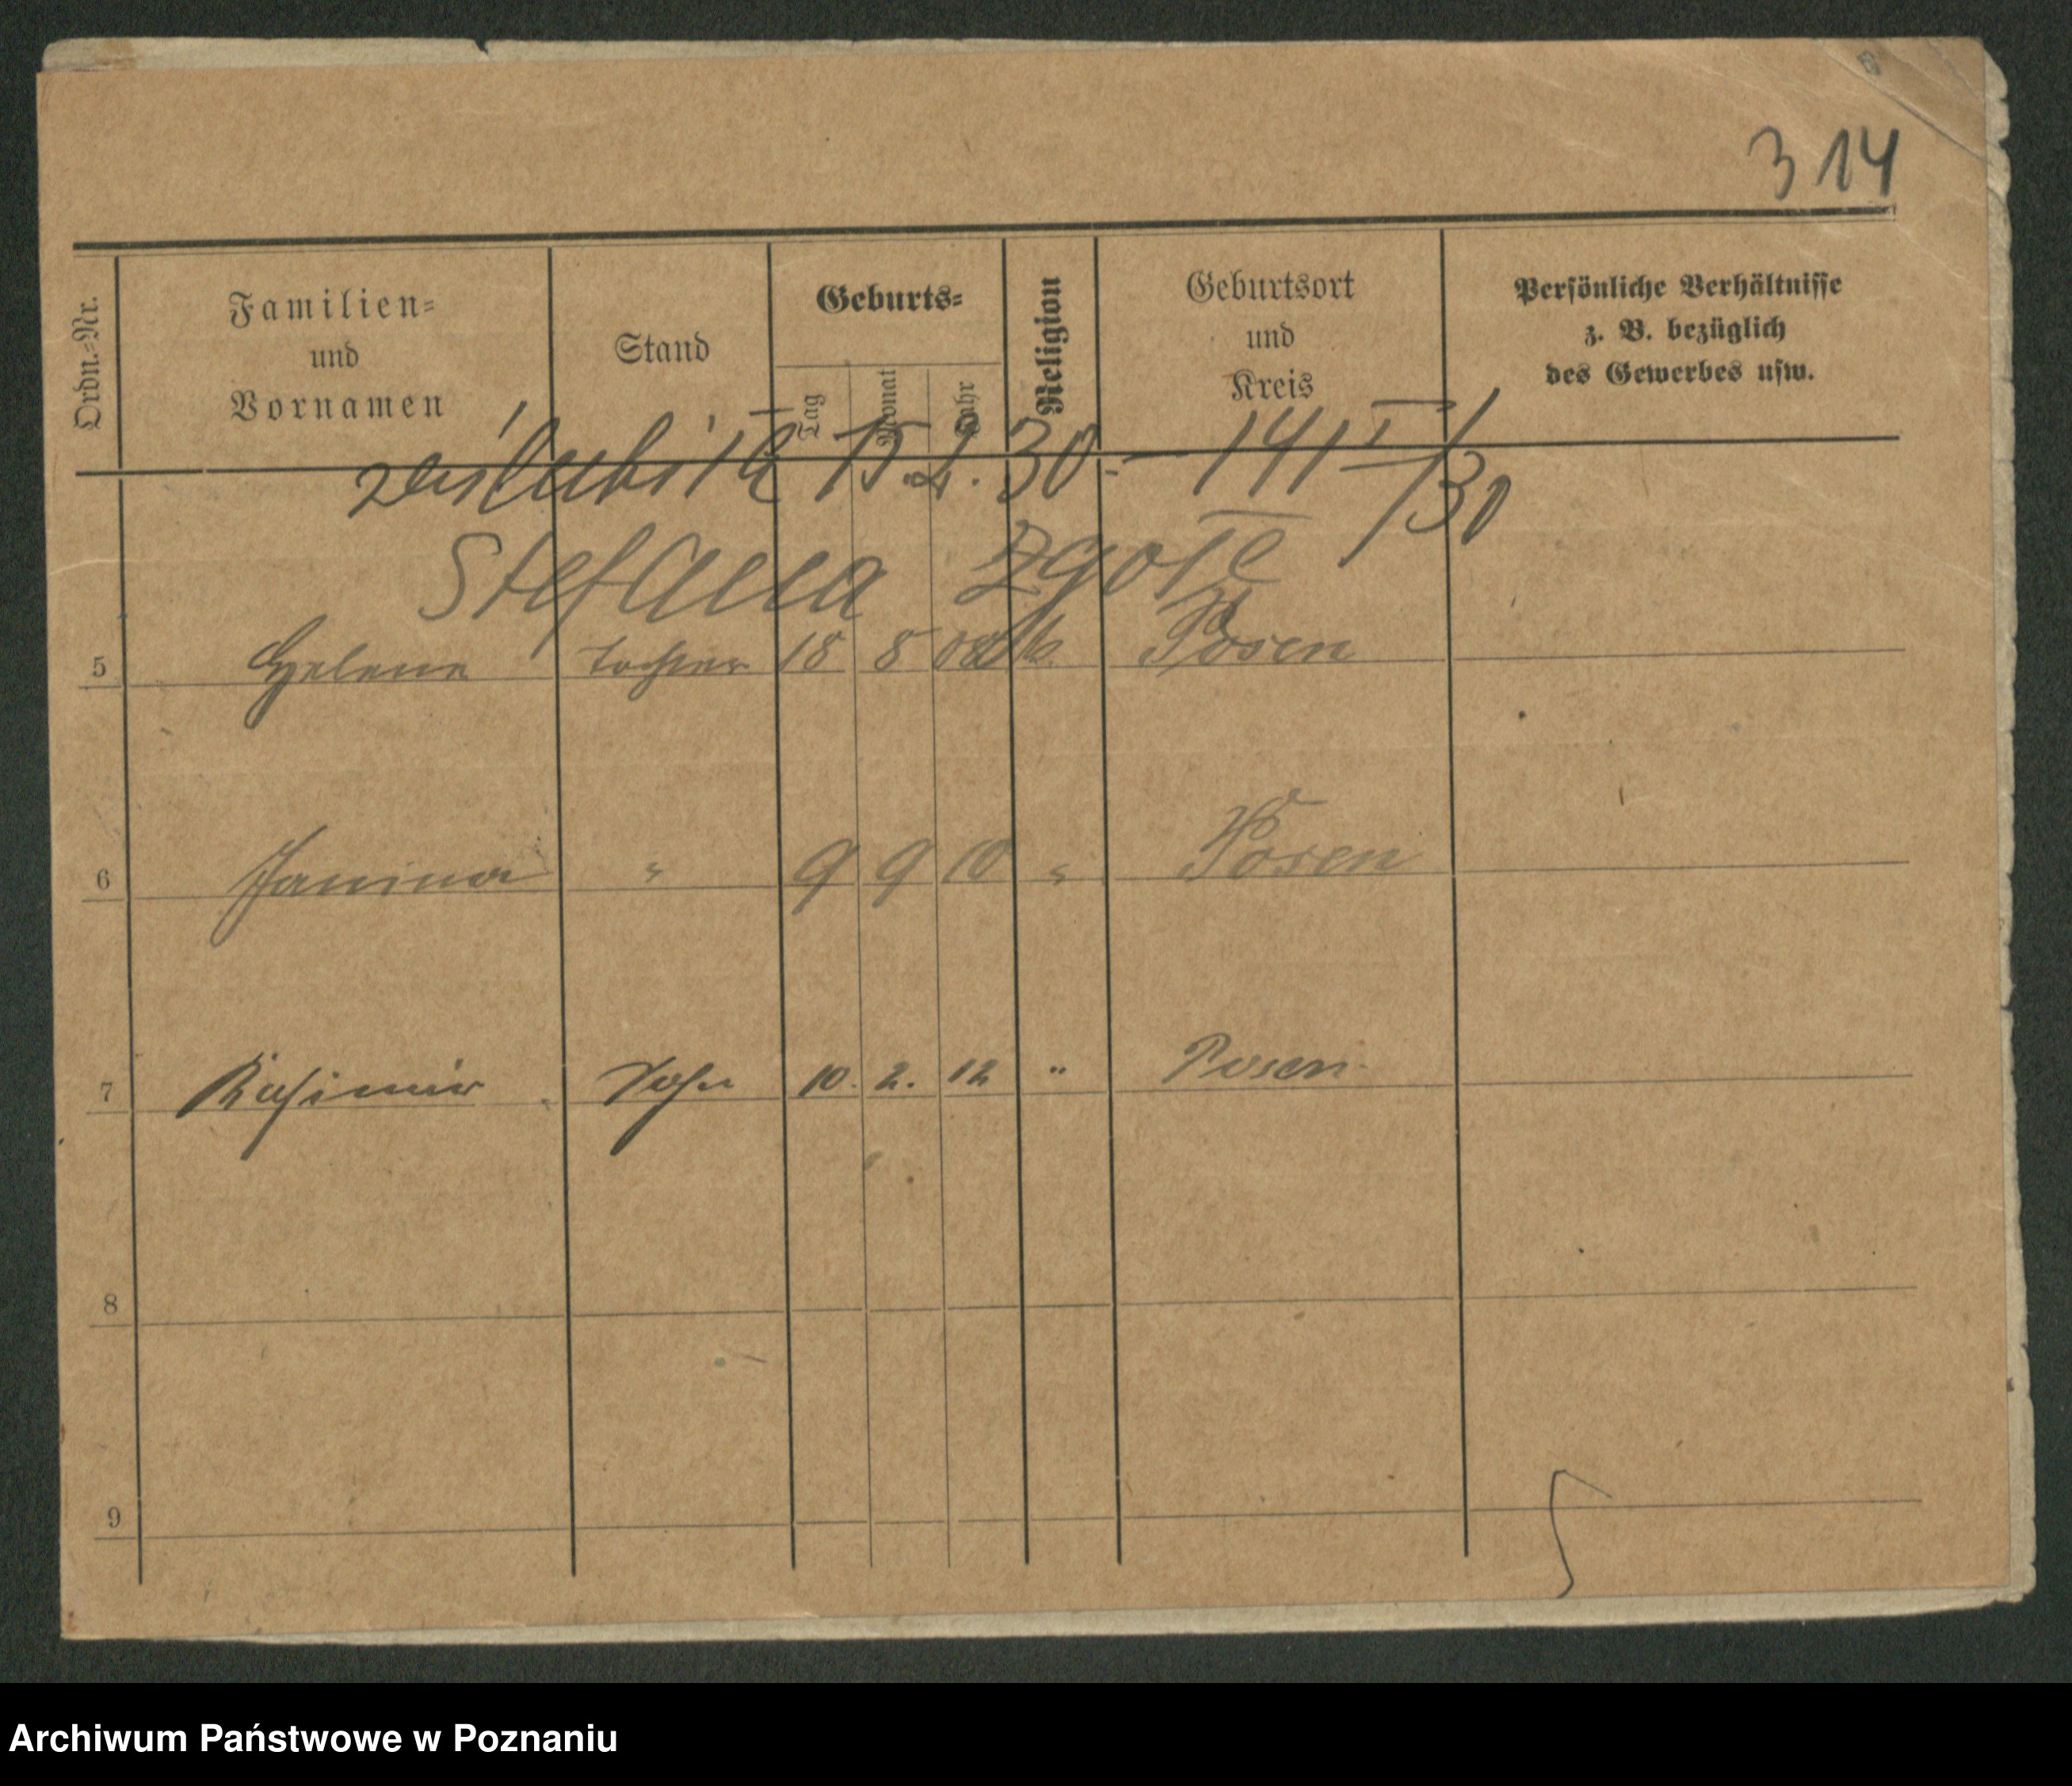 314
Ordn.-Nr.
Familien-
und
Vornamen
Stand
Geburts-
Tag
Monat
Jahr
Religion
Geburtsort
und
Kreis
Persönliche Verhältnisse
z. B. bezüglich
des Gewerbes usw.
15. 2. 30. — 141 I/30
Stefana
5 Helene Tochter 18 8 08 k. Posen
6 Janina " 9 9 10 " Posen
7 Kasimir Sohn 10. 2. 12 " Posen
8
9
Archiwum Państwowe w Poznaniu